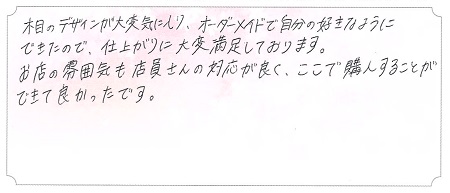 木目のデザインが大変気に入り、オーダーメイドで自分の好きなように
できたので、仕上がりに大変満足しております。
お店の雰囲気も店員さんの対応が良く、ここで購入することが
できて良かったです。